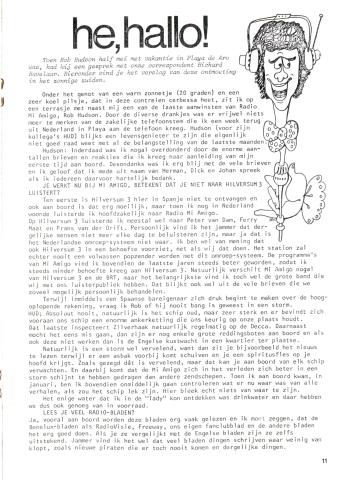 he, hallo!
Toen Rob Hudson half mei met vakantie in Playa de Aro
was, had hij een gesprek met onze correspondent Richard
Hieronder vind je het verslag van deze ontmoeting
in het zonnige zuiden.
Onder het genot van een warm zonnetje (20 graden) en een
zeer koel pilsje, dat in deze contreien cerbessa heet, zit ik op
een terrasje met naast mij een van de laatste aanwinsten van Radio
Mi Amigo, Rob Hudson. Door de diverse drankjes was er vrijwel niets
meer te merken van de zakelijke telefoonstem die ik een week terug
uit Nederland in Playa aan de telefoon kreeg. Hudson (voor zijn
kollega's HUD) blijkt een levensgenieter te zijn die eigenlijk
niet goed raad weet met al de belangstelling van de laatste maanden.
Hudson: Inderdaad was ik nogal overdonderd door de enorme aan-
tallen brieven en reakties die ik kreeg naar aanleiding van mijn
eerste tijd aan boord. Desondanks was ik erg blij met de vele brieven
en ik geloof dat ik mede uit naam van Herman, Dick en Johan spreek
als ik iedereen daarvoor hartelijk bedank.
JE WERKT NU BIJ MI AMIGO, BETEKENT DAT JE NIET NAAR HILVERSUM 3
LUISTERT?
Ten eerste is Hilversum 3 hier in Spanje niet te ontvangen en
ook aan boord is dat erg moeilijk, maar toen ik nog in Nederland
woonde luisterde ik hoofdzakelijk naar Radio Mi Amigo.
Op Hilversum 3 luisterde ik meestal wel naar Peter van Dam, Ferry
Maat en Frans van der Drift. Persoonlijk vind ik het jammer dat der-
gelijke mensen niet meer elke dag te beluisteren zijn, maar ja dat is
het Nederlandse omroep-systeem niet waar. Ik ben wel van mening dat
ook Hilversum 3 in een behoefte voorziet, net als wij dat doen. Het station zal
echter nooit een volwassen popzender worden met dit omroep-systeem. De programma's
van Mi Amigo vind ik bovendien de laatste jaren steeds beter geworden, zodat ik
steeds minder behoefte kreeg aan Hilversum 3. Natuurlijk verschilt Mi Amigo nogal
van Hilversum 3 en de BRT, maar het belangrijkste vind ik toch wel de grote band die
wij met ons luisterpubliek hebben. Dat blijkt ook wel uit de vele brieven die we
zoveel mogelijk persoonlijk behandelen.
Terwijl inmiddels een Spaanse bareigenaar zich druk begint te maken over de hoog-
oplopende rekening, vraag ik Rob of hij nooit bang is geweest in een storm.
HUD: Absoluut nooit, natuurlijk is het schip oud, maar zeer sterk en er bevindt zich
vooraan ons schip een enorme ankerketting die ons keurig op onze plaats houdt.
Dat laatste inspecteert Zilverhaak natuurlijk regelmatig op de Decca. Daarnaast
mocht het eens mis gaan, dan zijn er nog enkele grote reddingsboten aan boord en als
ook deze niet werken dan is de Engelse kustwacht in een kwartier ter plaatse.
Natuurlijk is een storm wel vervelend, want dan zit je bijvoorbeeld het nieuws
te lezen terwijl er een asbak voorbij komt schuiven en je een spiritusfles op je
hoofd krijgt. Zoals gezegd dat is vervelend, maar dat kan je aan boord van elk schip
verwachten. En daarbij komt dat de Mi Amigo zich in het verleden zich beter in een
storm schijnt te hebben gedragen dan andere zendschepen. Toen ik aan boord kwam, in
januari, ben ik bovendien onmiddelijk gaan controleren wat er nu waar was van alle
verhalen, als zou het schip lek zijn. Hier bleek echt niets van waar te zijn.
Het enige water dat ik in de "lady" kon ontdekken was drinkwater en daar hebben
we dus ook genoeg van in voorraad.
LEES JE VEEL RADIO-BLADEN?
Ja, vooral aan boord worden deze bladen erg vaak gelezen en ik moet zeggen, dat de
Benelux-bladen als RadioVisie, Freewave, ons eigen fanclubblad en de andere bladen
het erg goed doen. Als je ze vergelijkt met de Engelse bladen zijn ze zelfs
uitstekend. Jammer vind ik het wel dat veel bladen dingen schrijven waar weinig van
klopt, zoals nieuwe piraten die er toch nooit komen en dergelijke dingen.
11